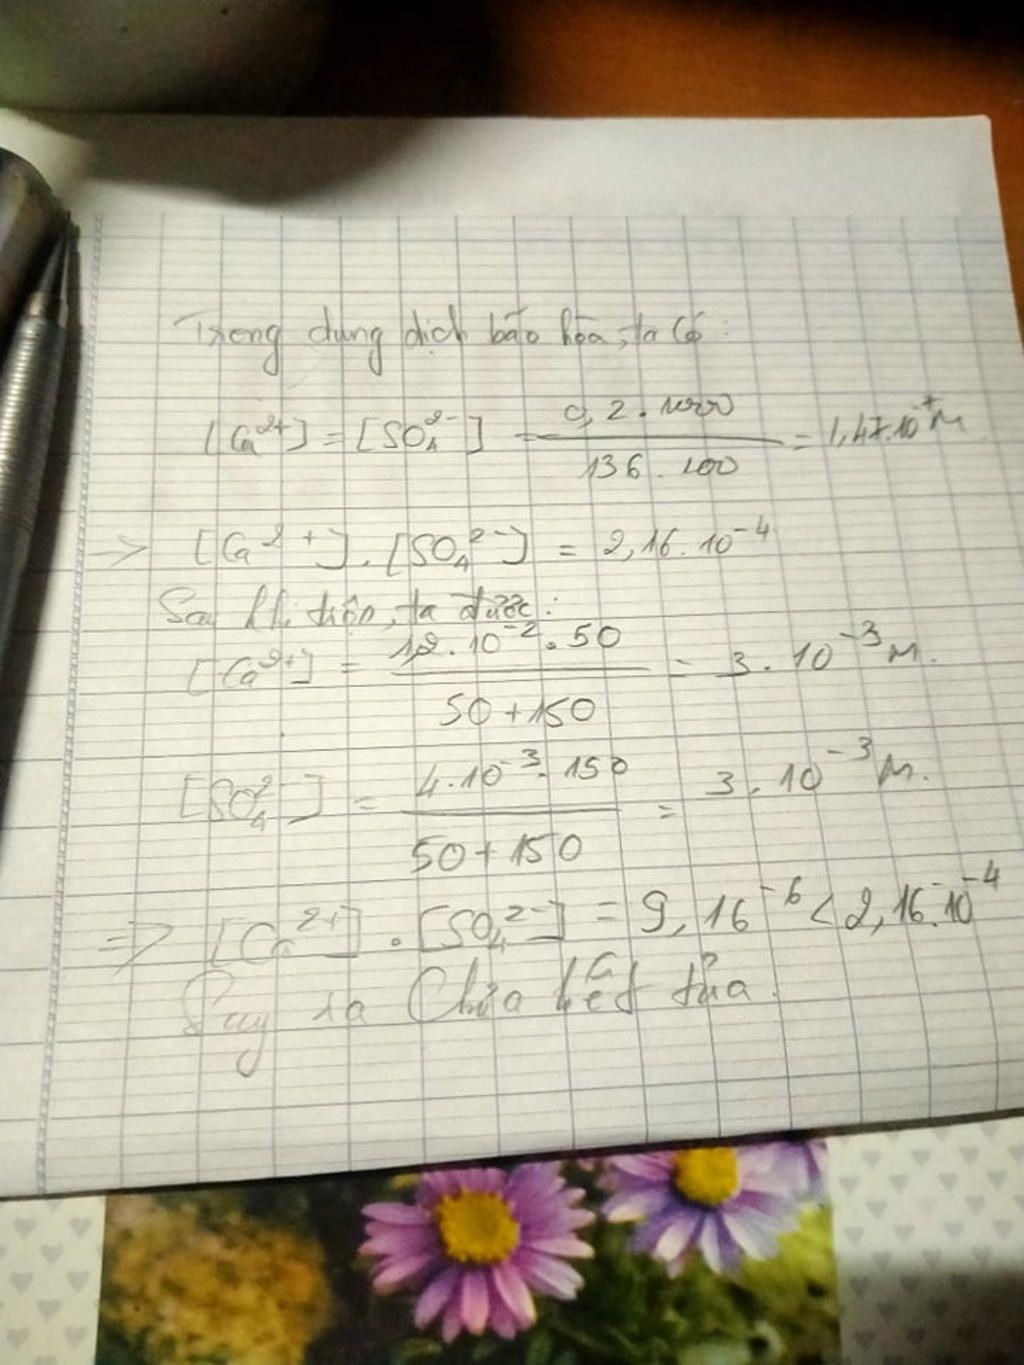 Trong dung dịch bão hòa, ta có:
[Ca²⁺] = [SO₄²⁻] = (0,2 . 1000) / (136 . 100) = 1,47.10 M
→ [Ca²⁺] . [SO₄²⁻] = 2,16.10⁻⁴
Sau khi trộn, ta được:
[Ca²⁺] = (1,2 . 10⁻² . 50) / (50 + 150) = 3 . 10⁻³ M.
[SO₄²⁻] = (4.10⁻³ . 150) / (50 + 150) = 3 . 10⁻³ M.
⇒ [Ca²⁺] . [SO₄²⁻] = 9,16⁻⁶ < 2,16.10⁻⁴
Suy ra Chưa kết tủa.